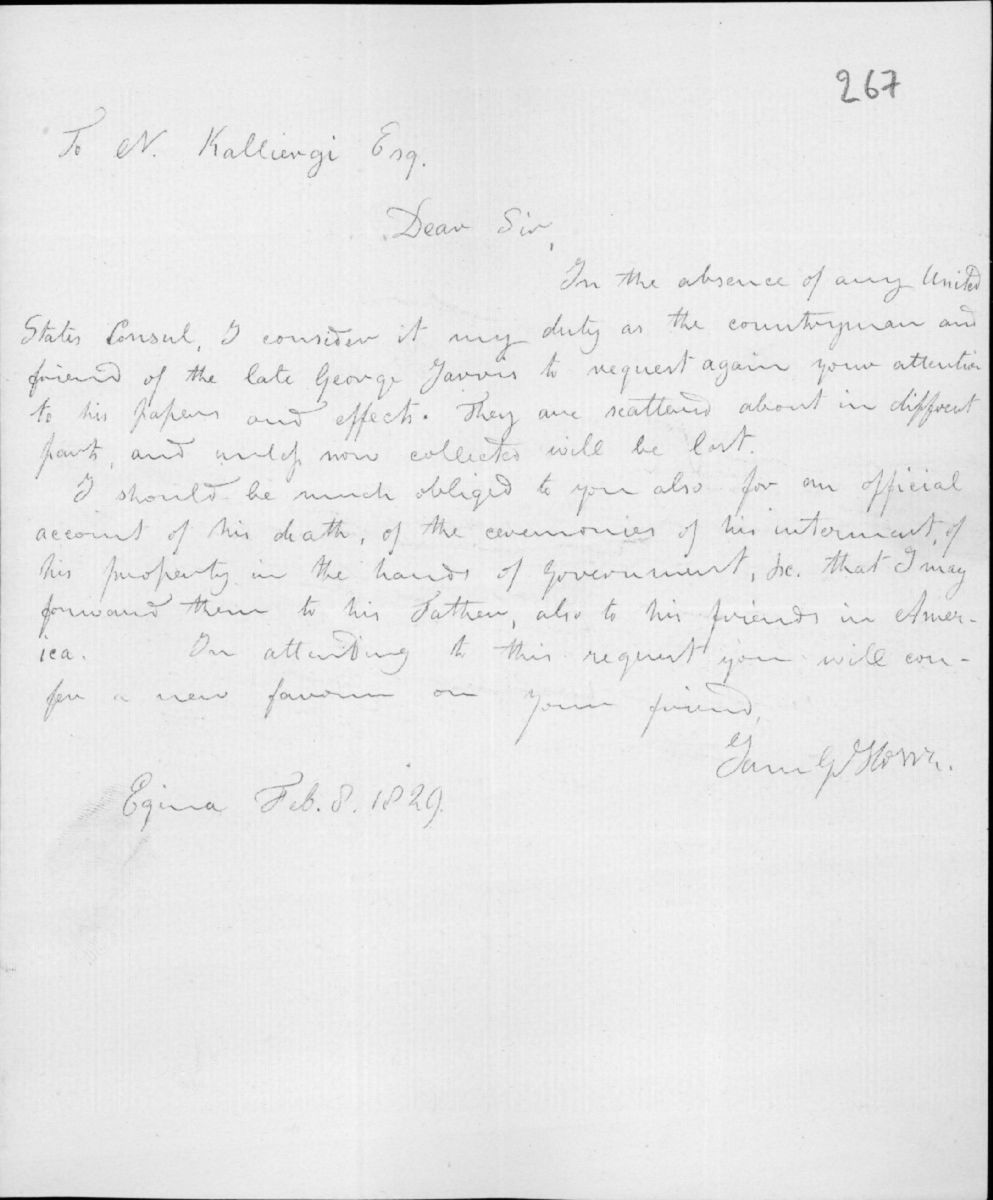 267
To N. Kalliergi Esq.
Dear Sir,
In the absence of any United
States Consul, I consider it my duty as the countryman and
friend of the late George Jarvis to request again your attention
to his papers and effects. They are scattered about in different
parts, and unless now collected will be lost.
I should be much obliged to you also for an official
account of his death, of the ceremonies of his interment, of
his property in the hands of government, &c. that I may
forward them to his Father, also to his friends in Amer-
ica. In attending to this request you will con-
fer a new favour on your friend,
Saml G. Howe.
Egina Feb. 8. 1829.